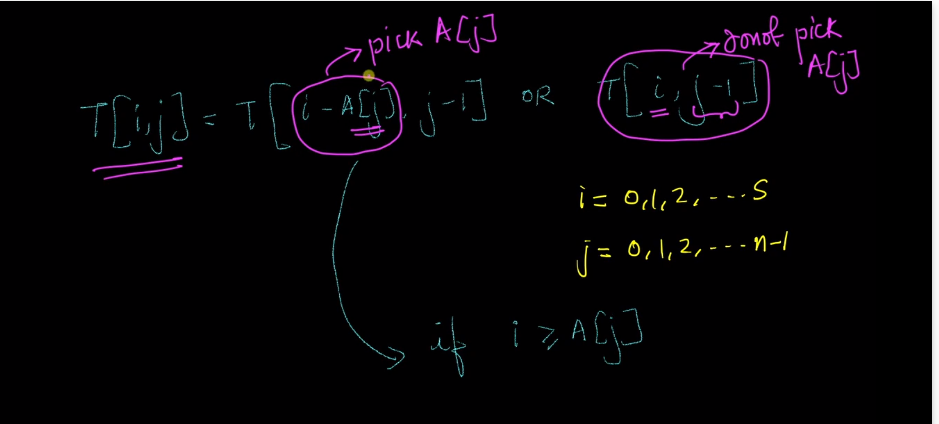 pick A[j]
donot pick
A[j]
T[i,j] = T[i-A[j], j-1] OR T[i, j-1]
i= 0,1,2,---- S
j= 0,1,2,---- n-1
if i ≥ A[j]